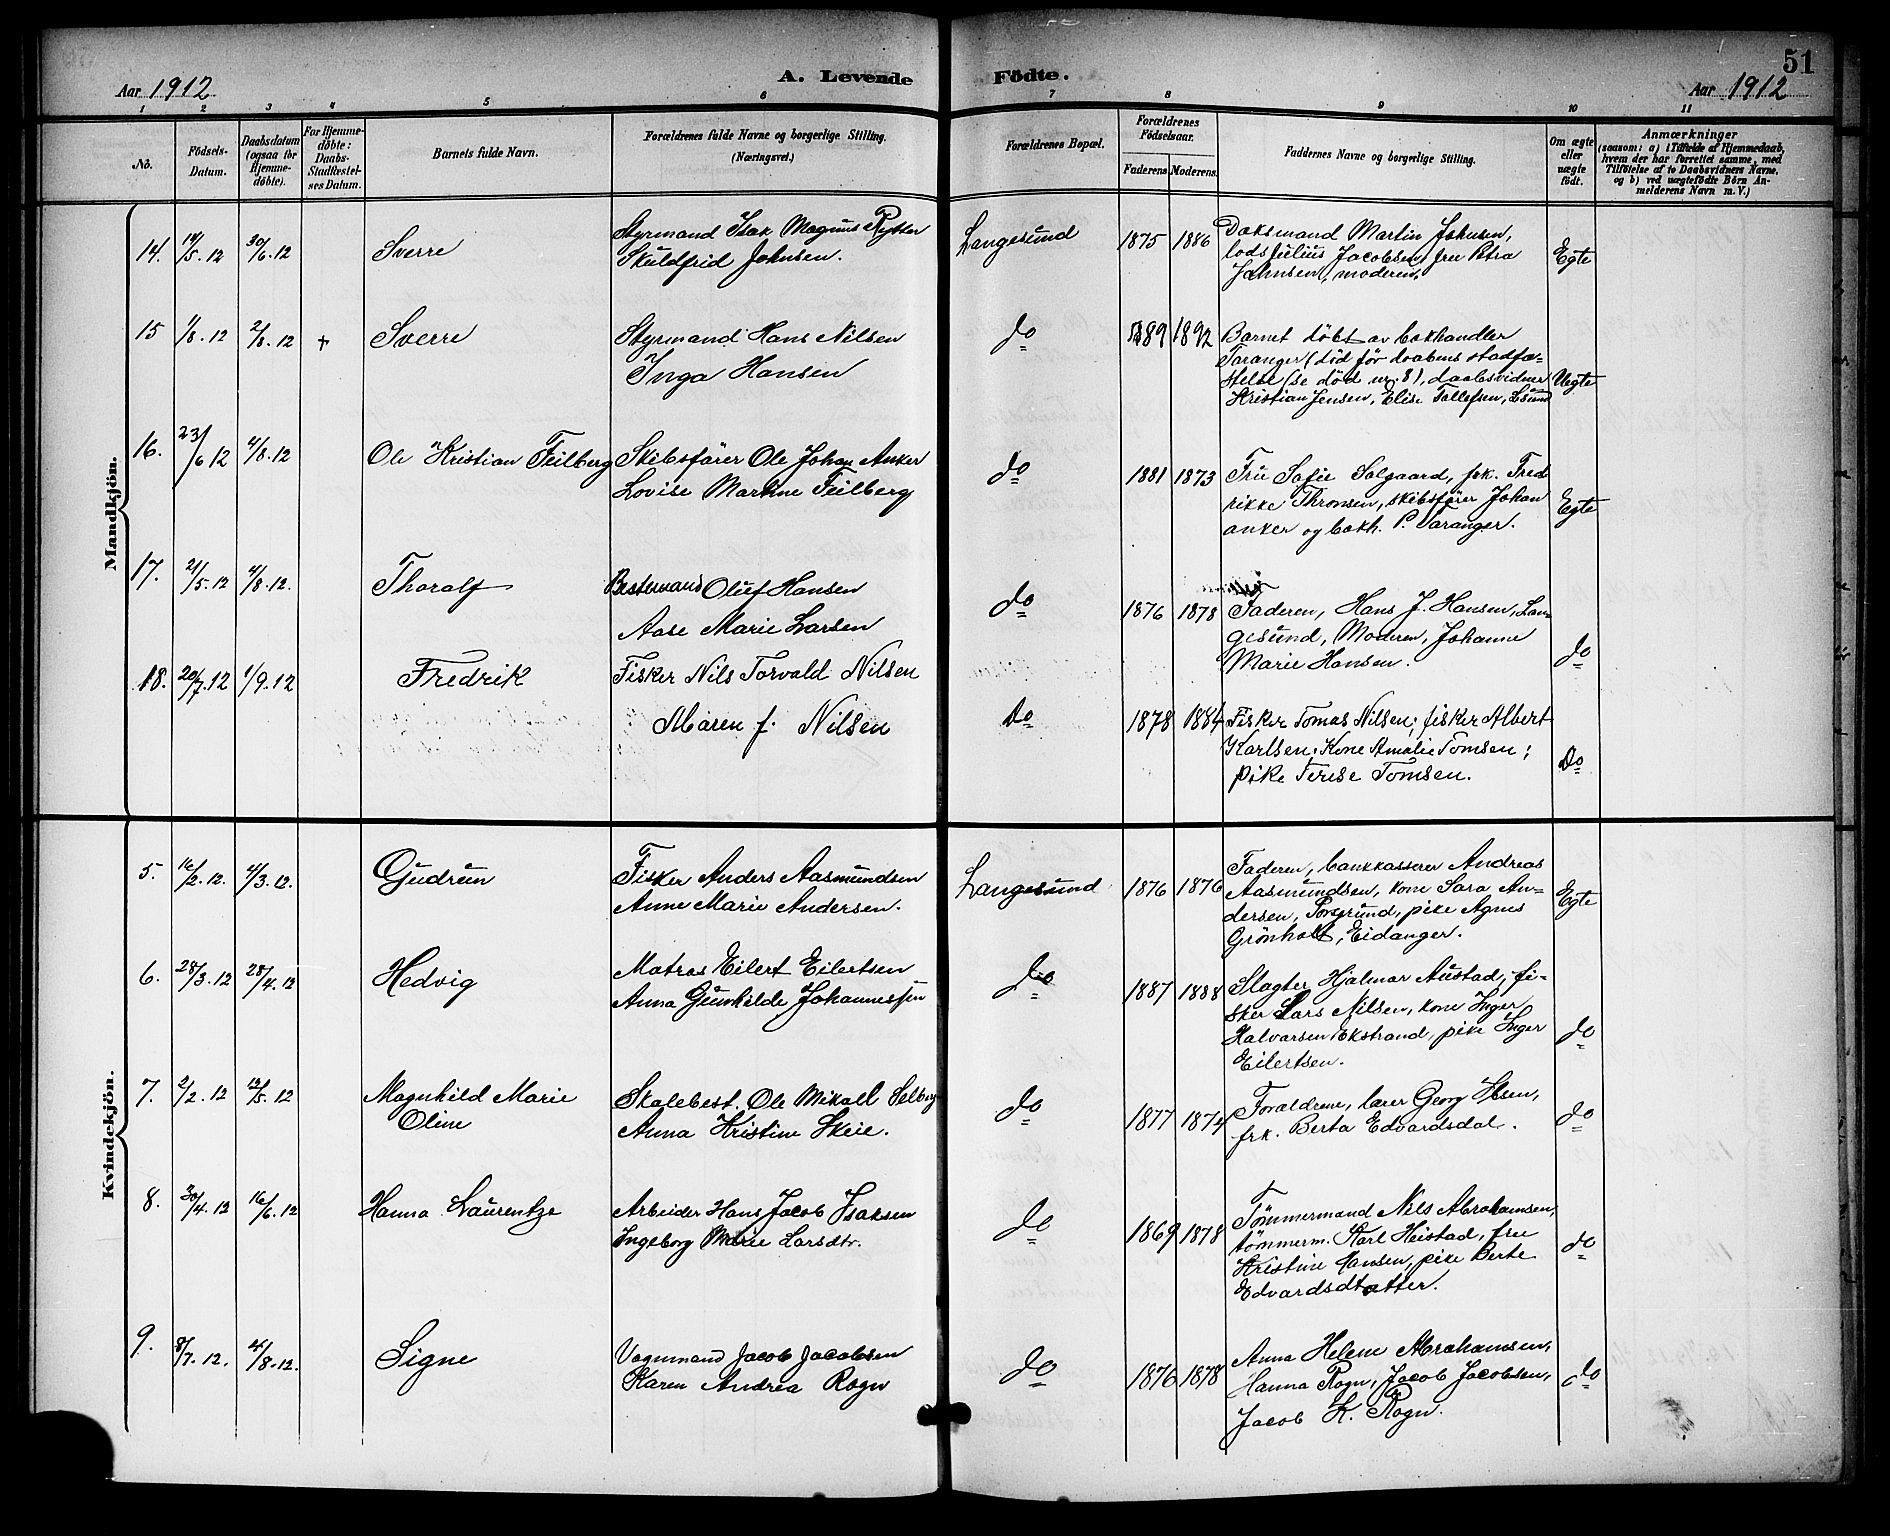 51
Aar 1912
A. Levende Födte.
Aar 1912
1 2 3 4 5 6 7 8 9 10 11
No.
Födsels-Datum.
Daabsdatum (ogsaa for Hjemme-döbte).
For Hjemme-döbte: Daabs-Stadfæstel-ses Datum.
Barnets fulde Navn.
Forældrenes fulde Navne og borgerlige Stilling.
(Næringsvei.)
Forældrenes Bopæl.
Forældrenes Födselsaar.
Faderens Moderens.
Faddernes Navne og borgerlige Stilling.
Om ægte eller uægte födt.
Anmærkninger
(saasom: a) i Tilfælde af Hjemmedaab,
hvem der har forrettet samme, med
Tilföielse af to Daabsvidners Navne,
og b) ved uægtefödte Börn An-
melderens Navn m. V.)
Mandkjön.
14. 14/5.12 30/6.12 Sverre
Styrmand Isak Magnus Rytter
Skuldfrid Johnsen.
Langesund 1875 1886
Doksmand Martin Johnsen,
lods Julius Jacobsen, fru Petra
Johnsen, moderen.
Egte
15 1/8.12 2/8.12 + Sverre
Styrmand Hans Nilsen
Inga Hansen
do 1889 1892
Barnet döbt av bokhandler
Taranger (död før daabens stadfæ-
stelse (se död nr. 8), daabsvidner
Kristian Jensen, Elise Tollefsen, Lsund
Uegte
16. 23/6 12 4/8.12 Ole Kristian Feilberg
Skibsfører Ole Johan Anker
Lovise Martine Feilberg
do 1881 1873
Fru Sofie Salgaard, frk. Fred
rikke Thronsen, skibsfører Johan
anker og bokh. P. Taranger.
Egte
17. 21/5.12 4/8.12. Thoralf
Bestemand Oluf Hansen
Aase Marie Larsen
do 1876 1878
Faderen, Hans J. Hansen, Lan-
gesund, Moderen, Johanne
Marie Hansen.
do
18. 20/7.12 1/9.12 Fredrik
Fisker Nils Torvald Nilsen
Maren f. Nilsen
Do 1878 1884
Fisker Tomas Nilsen; fisker Albert
Karlsen; Kone Amalie Tomsen;
pike Terese Tomsen.
Do
Kvindekjön.
5. 16/2.12. 4/3.12. Gudrun
Fisker Anders Aasmundsen
Anne Marie Andersen.
Langesund 1876 1876
Faderen, bankkasserer Andreas
Aasmundsen, kone Sara An-
dersen, Porsgrund, pike Agnes
Grönholt, Eidanger.
Egte
6. 28/3.12 28/4.12 Hedvig
Matros Eilert Eilertsen
Anna Gunhilde Johannessen
do 1887 1888
Slagter Hjalmar Austad, fi-
sker Lars Nilsen, kone Inger
Halvorsen Ekstrand, pike Inger
Eilertsen.
do
7. 2/2.12 12/5.12 Magnhild Marie
Oline
Skolebest. Ole Mikall Selberg
Anna Kristine Skeie.
do 1877 1874
Foraldrene, lærer Georg Ibsen,
frk. Berta Edvardsdal.
do
8. 30/4.12 16/6.12 Hanna Laurentze
Arbeider Hans Jacob Isaksen
Ingeborg Marie Larsdtr.
do 1869 1878
Tömmermand Nils Abrahamsen,
tömmerm. Karl Heistad, fru
Kristine Hansen, pike Berte
Edvardsdtatter.
do
9. 8/7.12. 4/8.12. Signe
Vognmand Jacob Jacobsen
Karen Andrea Rogn
do 1876 1878
Anna Helene Abrahamsen,
Hanna Rogn, Jacob Jacobsen,
Jacob K. Rogn.
do